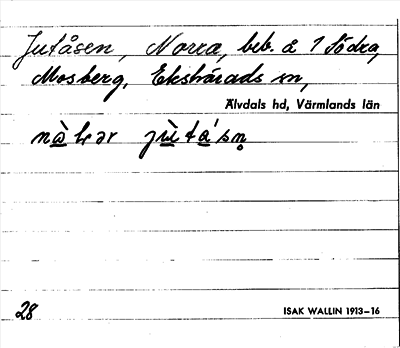 Jutåsen, Norra, beb. å 1 Södra
Mosberg, Ekshärads sn,
Älvdals hd, Värmlands län
28
ISAK WALLIN 1913–16